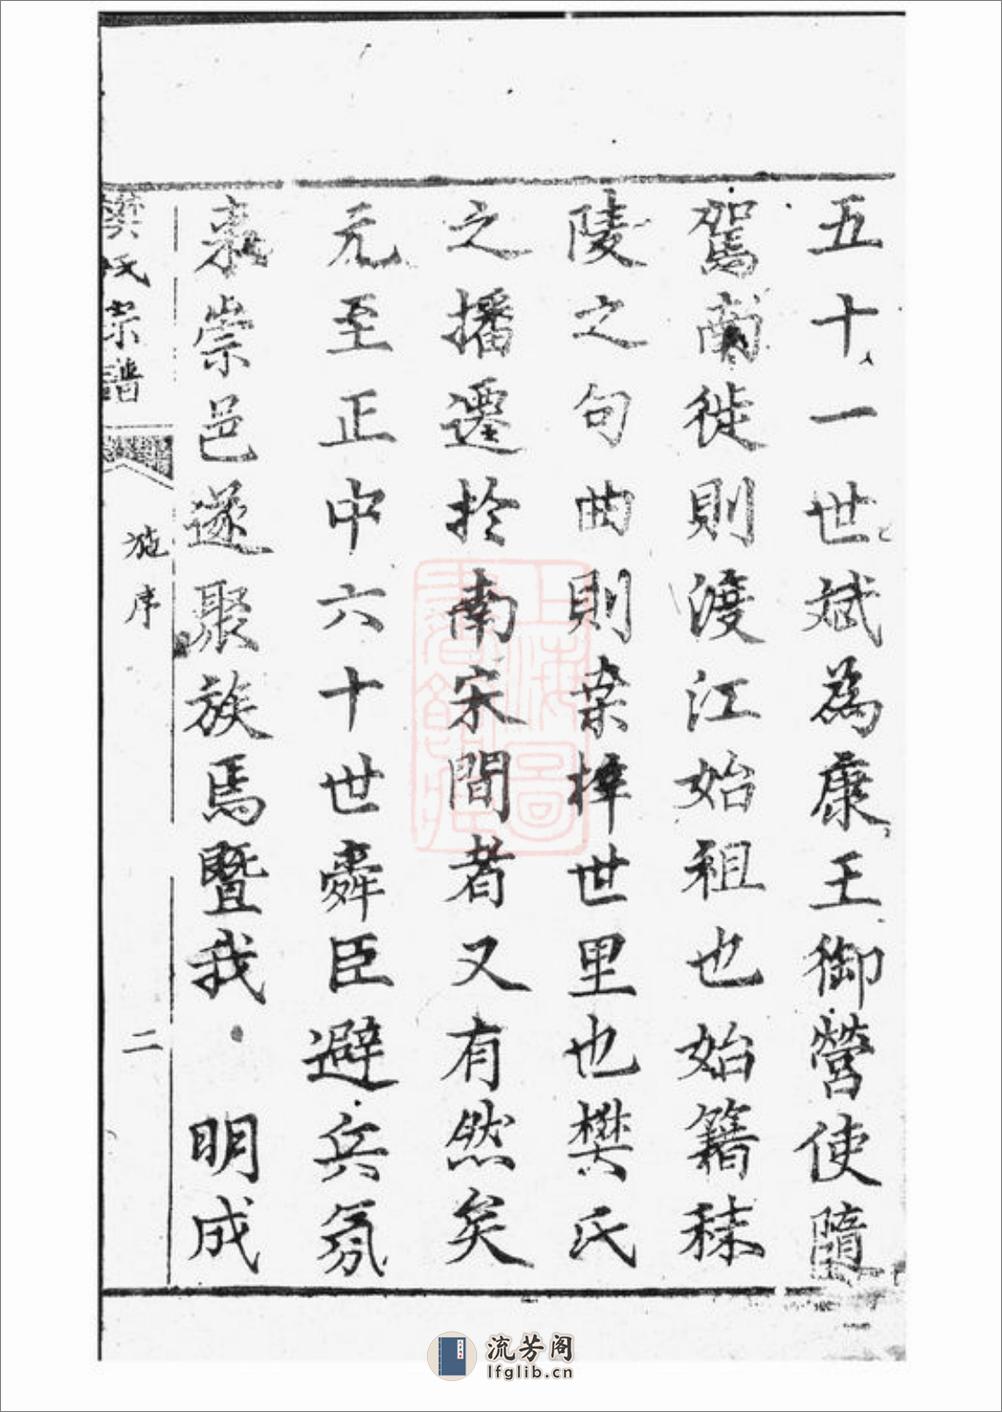 五十一世斌為康王御營使隨
駕南徙則渡江始祖也始籍秣
陵之句曲則棄梓世里也樊氏
之播遷於南宋間者又有然矣
元至正中六十世舜臣避兵氛
來崇邑遂聚族焉暨我 明成
樊氏宗譜
施序
二
上海圖書館藏
流芳阁
lfglib.cn